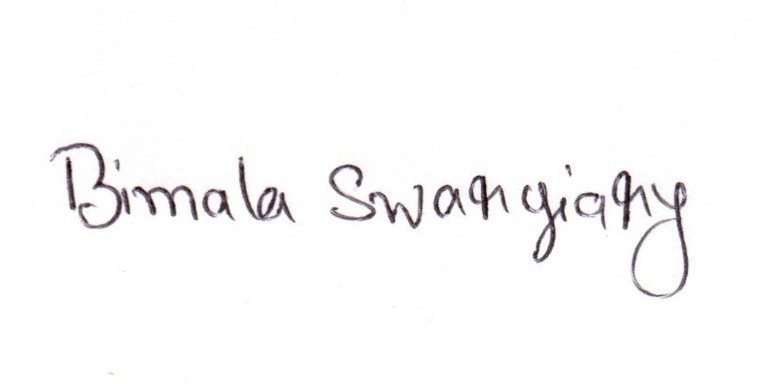 Bimala Swargiary